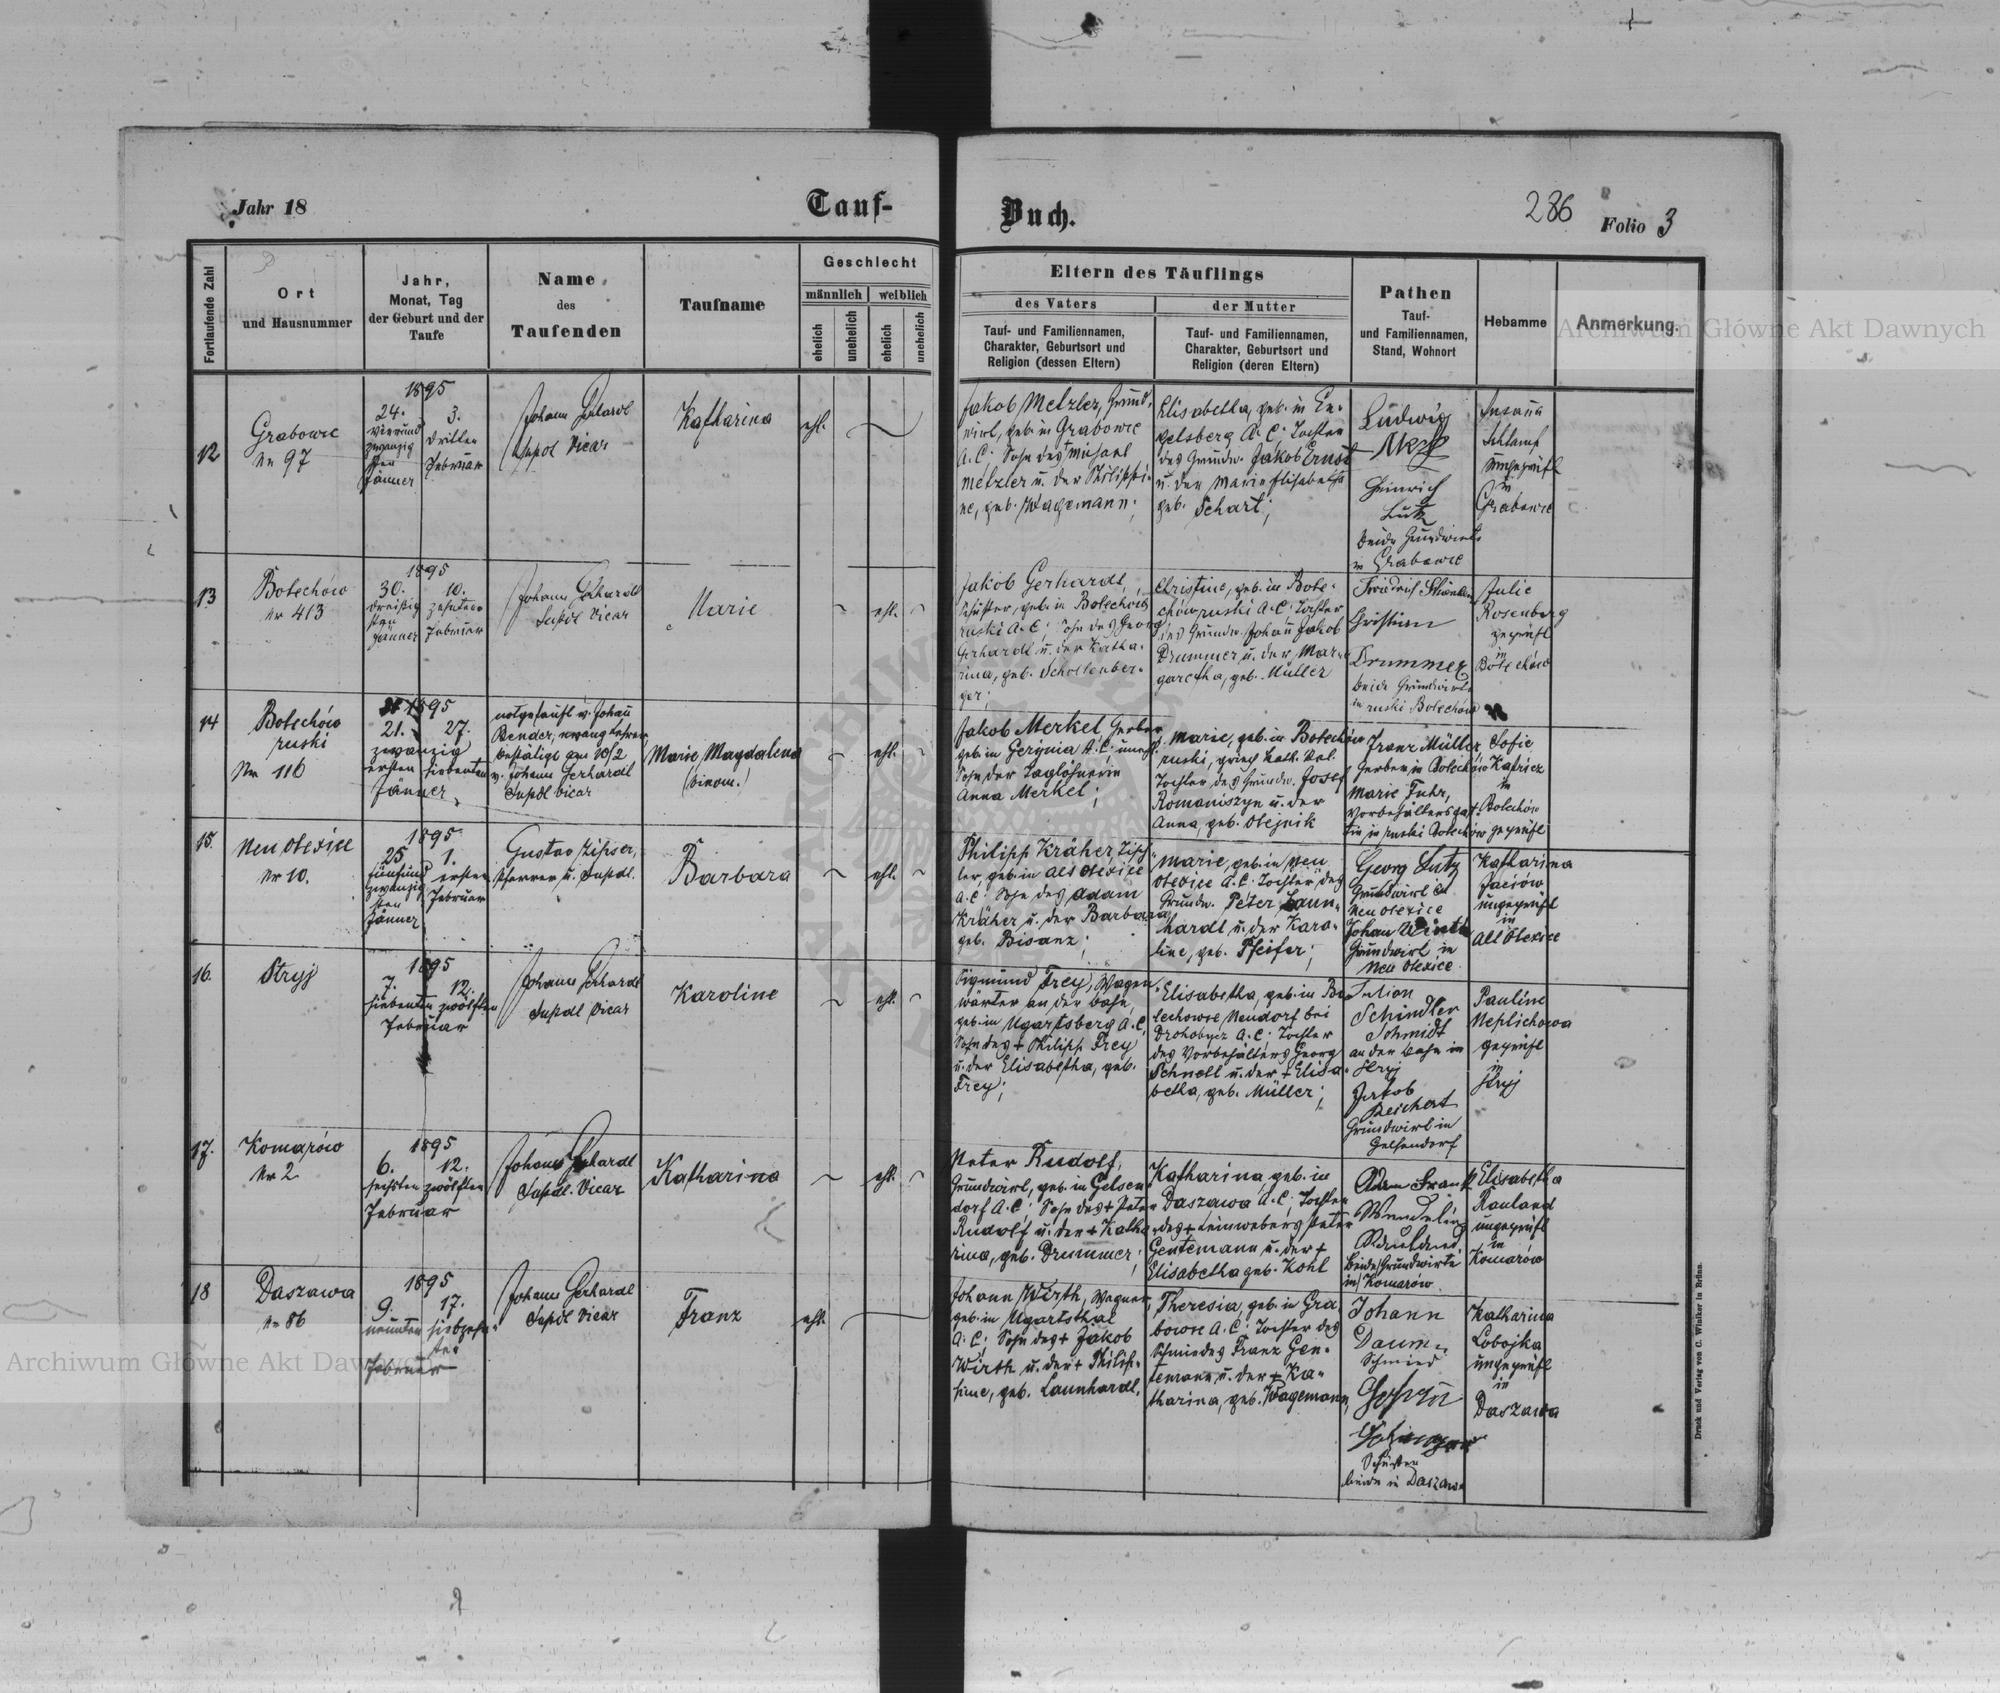 Jahr 18
Tauf-
Buch.
286
Folio 3
Fortlaufende Zahl
Ort
und Hausnummer
Jahr,
Monat, Tag
der Geburt und der
Taufe
Name
des
Taufenden
Taufname
Geschlecht
männlich
weiblich
ehelich
unehelich
ehelich
unehelich
Eltern des Täuflings
des Vaters
Tauf- und Familiennamen,
Charakter, Geburtsort und
Religion (dessen Eltern)
der Mutter
Tauf- und Familiennamen,
Charakter, Geburtsort und
Religion (deren Eltern)
Pathen
Tauf-
und Familiennamen,
Stand, Wohnort
Hebamme
Anmerkung.
12
Grabowce
Nr 97
1895
24.
vierund
zwanzig
sten
Jänner
3.
dritten
Februar
Johann Gerhardt
Supdl Vicar
Katharina
ehl.
Jakob Metzler, Grund-
wirt, geb. in Grabowce
A.C; Sohn des Michael
Metzler u. der Philippi-
ne, geb. Wagemann;
Elisabetha, geb. in En-
gelsberg A.C; Tochter
des Grundw. Jakob Ernst
u. der Marie Elisabetha
geb. Schart;
Ludwig
Heinrich
Lutz
beide Grundwirte
in Grabowce
Susana
Schlamp
ungeprüft
in
Grabowce
13
Bolechów
Nr 413
1895
30.
dreißig
sten
Jänner
10.
zehnten
Februar
Johann Gerhardt
Supdl Vicar
Marie
ehl.
Jakob Gerhardt,
Schuster, geb. in Bolechów
ruski A.C; Sohn des Georg
Gerhardt u. der Katha-
rina, geb. Schollenber-
ger;
Christine, geb. in Bole-
chów ruski A.C; Tochter
des Grundw. Johann Jakob
Drummer u. der Mar-
garetha, geb. Müller
Friedrich
Christian
Drummer
beide Grundwirte
in ruski Bolechów
Julie
Rosenberg
geprüft
in
Bolechów
14
Bolechów
ruski
Nr 116
1895
21.
zwanzig
ersten
Jänner
27.
siebenten
notgetauft v. Johann
Bender, evang Lehrer
bestätigt am 10/2
v. Johann Gerhardt
Supdl Vicar
Marie Magdalena
(binom.)
ehl.
Jakob Merkel, Gerber
geb. in Gerynia A.C; unehl.
Sohn der Taglöhnerin
Anna Merkel;
Marie, geb. in Bolechów
ruski, griech kath. Rel.
Tochter des Grundw. Josef
Romaniszyn u. der
Anna, geb. Olejnik
Franz Müller,
Gerber in Bolechów
Marie Fuhr,
Vorbehältersgat-
tin in ruski Bolechów
Sofie
Katricz
in
Bolechów
geprüft
15.
Neu Olexice
Nr 10.
1895
25
fünfund
zwanzig
sten
Jänner
1.
ersten
Februar
Gustav Zipser,
Pfarrer u. Supdl.
Barbara
ehl.
Philipp Kräher, Tisch-
ler geb. in Alt Olexice
A.C; Sohn des Adam
Kräher u. der Barbara
geb. Bisanz;
Marie, geb. in Neu
Olexice A.C; Tochter des
Grundw. Peter Laun-
hardt u. der Karo-
line, geb. Pfeifer;
Georg Lutz
Grundwirt in
Neu Olexice
Johan Wirth
Grundwirt in
Neu Olexice
Katharina
Jaciów
ungeprüft
in
Alt Olexice
16.
Stryj
1895
7.
siebenten
12.
zwölften
Februar
Johann Gerhardt
Supdl Vicar
Karoline
ehl.
Sigmund Frey, Wagen-
wärter an der Bahn,
geb. in Ugartsberg A.C,
Sohn des + Philipp Frey
u. der Elisabetha, geb.
Frey;
Elisabetha, geb. in Bo-
lechowce Neudorf bei
Drohobycz A.C; Tochter
des Vorbehälters Georg
Schnell u. der + Elisa-
betha, geb. Müller;
Julion
Schindler
Schmidt
an der Bahn in
Stryj
Jakob
Reichert
Grundwirt in
Gelsendorf
Pauline
Meplichowa
geprüft
in
Stryj
17.
Komarów
Nr 2
1895
6.
sechsten
12.
zwölften
Februar
Johann Gerhardt
Supdl. Vicar
Katharina
ehl.
Peter Rudolf,
Grundwirt, geb. in Gelsen-
dorf A.C; Sohn des + Peter
Rudolf u. der + Katha-
rina, geb. Drummer;
Katharina, geb. in
Daszawa A.C; Tochter
des + Leinwebers Peter
Gentemann u. der +
Elisabetha geb. Kohl
Adam Frank
Wendelin
Rauland
beide Grundwirte
in Komarów
Elisabetha
Rauland
ungeprüft
in
Komarów
18
Daszawa
Nr 86
1895
9.
neunten
17.
siebzehn-
ten
Februar
Johann Gerhardt
Supdl Vicar
Franz
ehl.
Johann Wirth, Wagner,
geb. in Ugartsthal
A.C; Sohn des + Jakob
Wirth u. der + Philip-
pine, geb. Launhardt,
Theresia, geb. in Gra-
bowce A.C; Tochter des
Schmiedes Franz Gen-
temann u. der + Ka-
tharina, geb. Wagemann,
Johann
Daum
Schmied
Schuster
beide in Daszawa
Katharina
Lobojka
ungeprüft
in
Daszawa
Druck und Verlag von C. Winiker in Brünn.
Archiwum Główne Akt Dawnych
Archiwum Główne Akt Dawnych